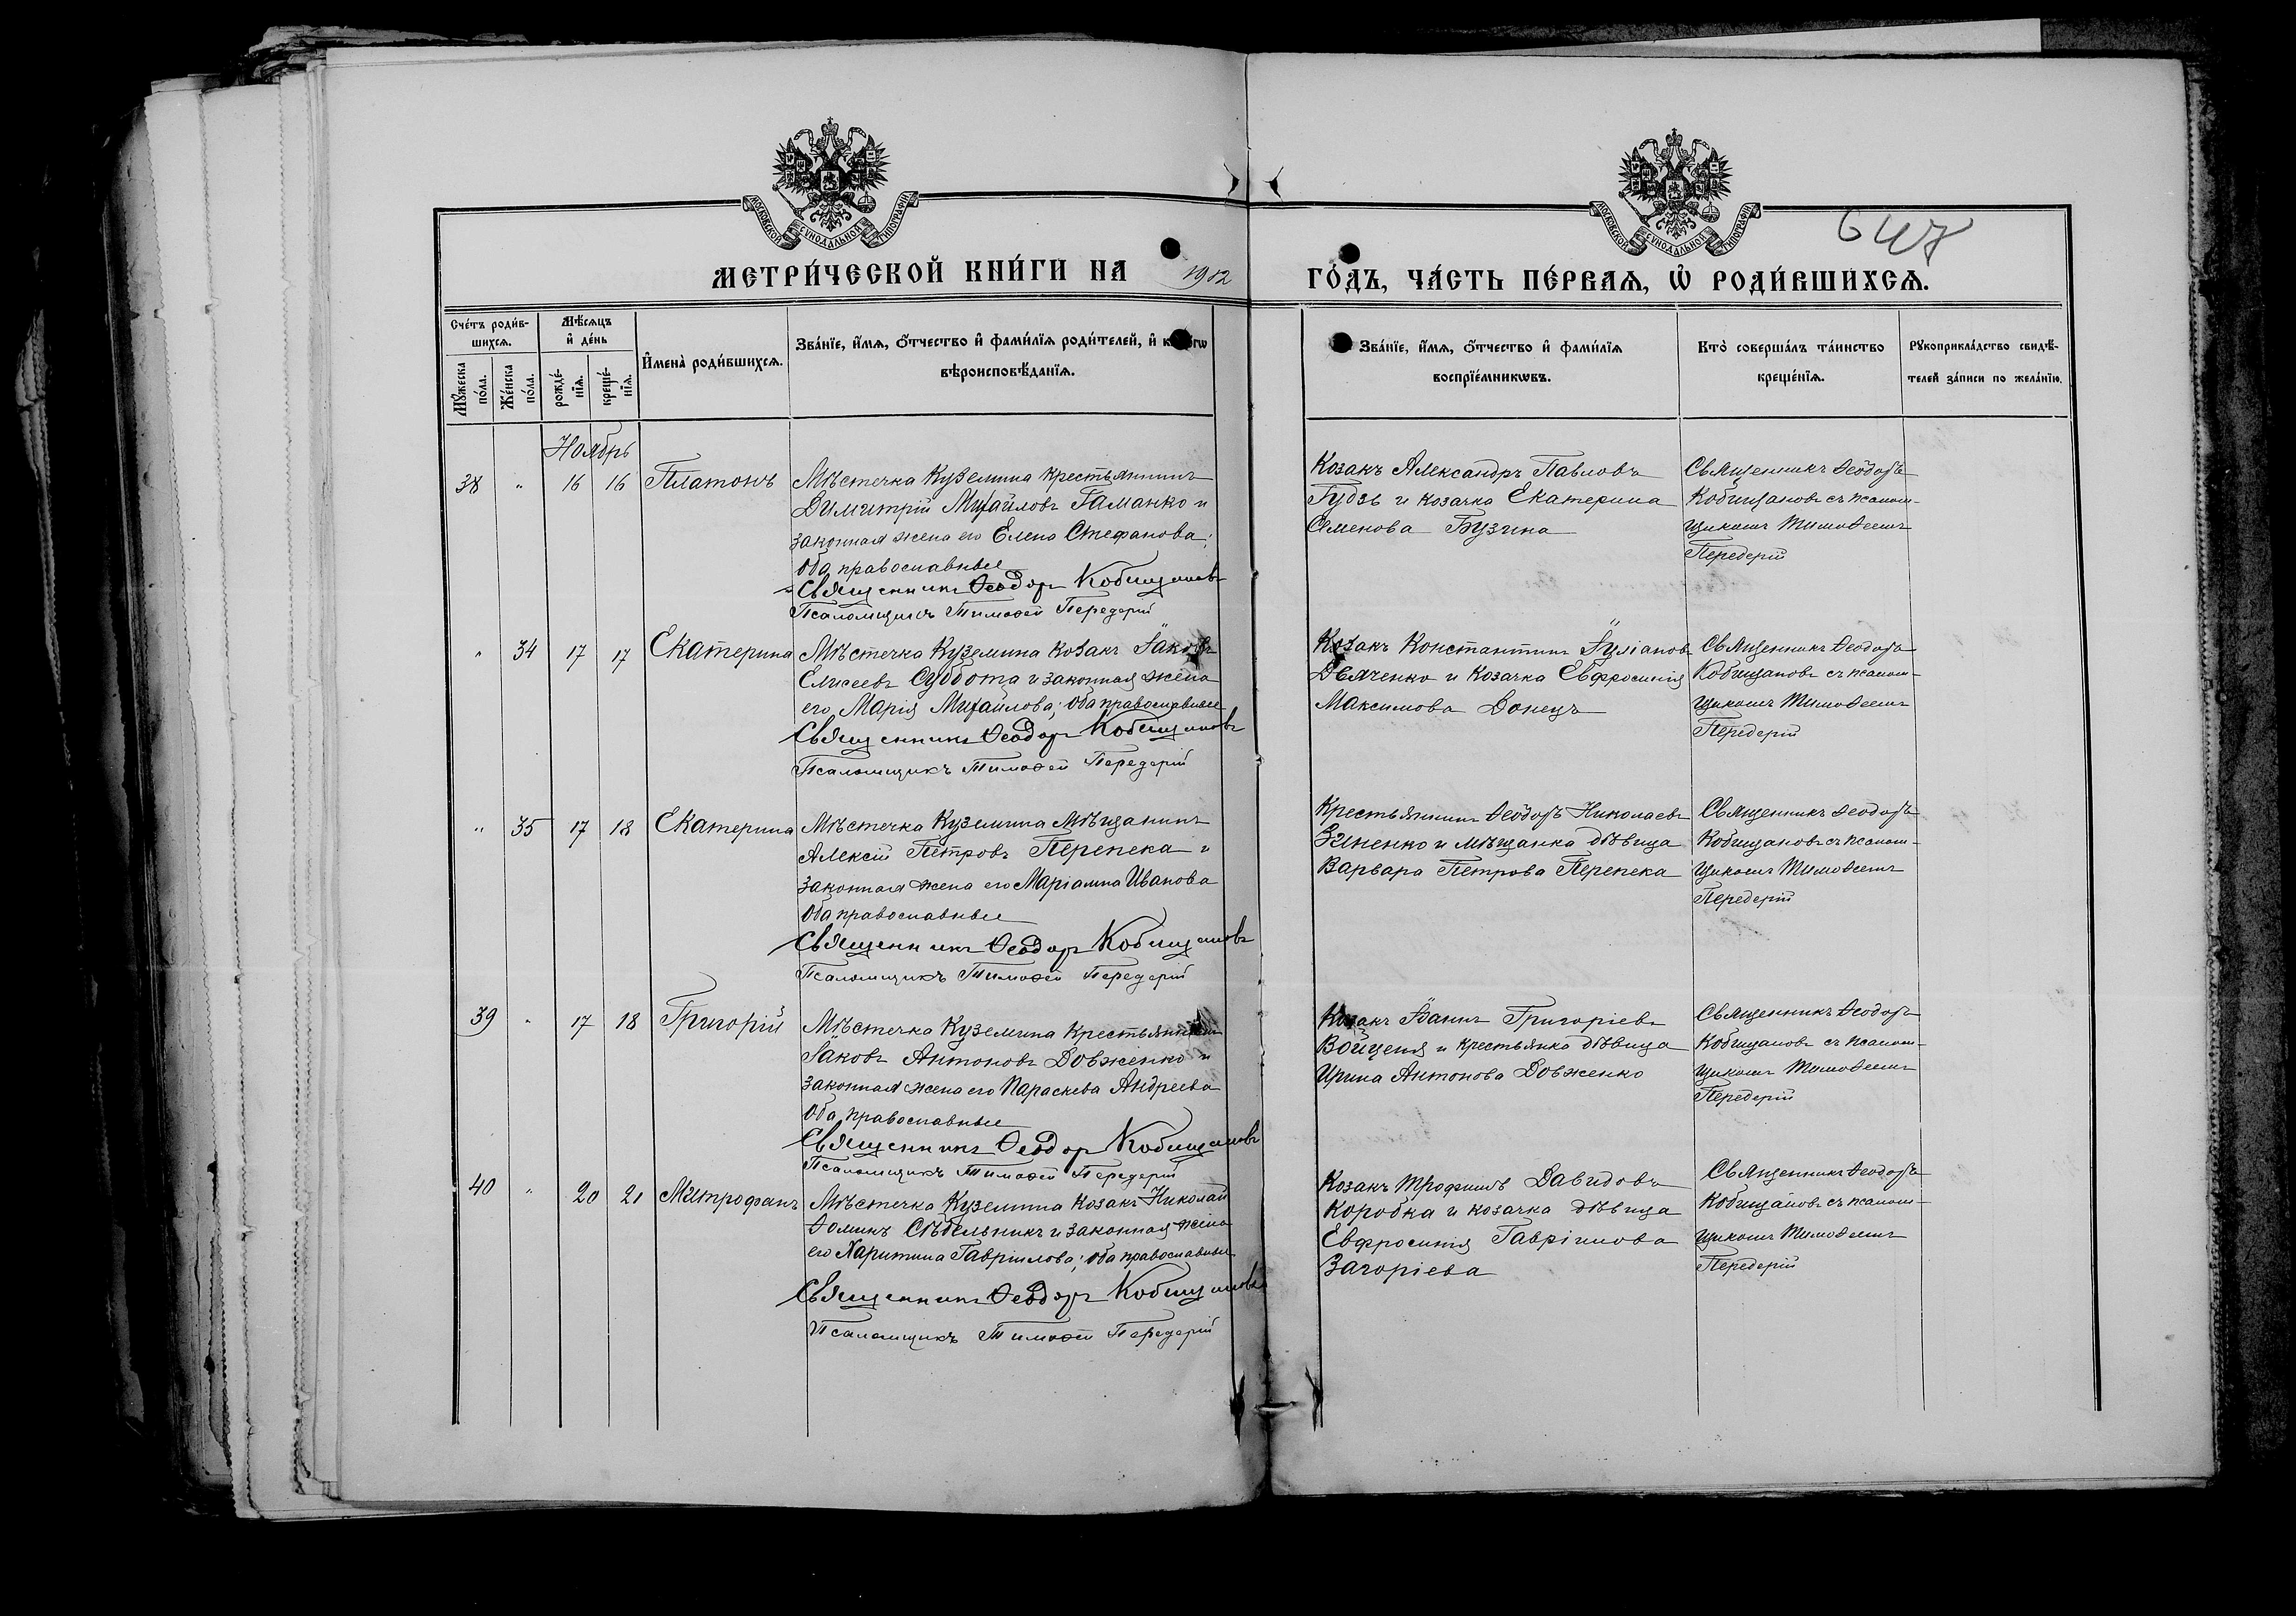 МОСКОВСКОЙ СѴНОДАЛЬНОЙ ТИПОГРАФІИ
МОСКОВСКОЙ СѴНОДАЛЬНОЙ ТИПОГРАФІИ
647
МЕТРИ́ЧЕСКОЙ КНИ́ГИ НА 1912 ГО́ДЪ, ЧА́СТЬ ПЕ́РВАѦ, Ѡ҆ РОДИ́ВШИХСѦ.
Сче́тъ роди́в-
шихсѧ.
Мꙋ́жеска по́ла.
Же́нска по́ла.
Мѣ́сѧцъ
и҆ де́нь
рожде́-
нїѧ.
креще́-
нїѧ.
И҆мена̀ роди́вшихсѧ.
Зва́нїе, и҆́мѧ, ѻ҆́тчество и҆ фами́лїѧ роди́телей, и҆
вѣроисповѣ́данїѧ.
Зва́нїе, и҆́мѧ, ѻ҆́тчество и҆ фами́лїѧ
воспрїе́мникѡвъ.
Кто̀ соверша́лъ та́инство
креще́нїѧ.
Рꙋкоприкла́дство свидѣ́-
телей за́писи по жела́нїю.
Ноябрь
38 " 16 16 Платонъ
Мѣстечка Куземина крестьянинъ
Димитрій Михайловъ Гаманко и
законная жена его Елена Стефанова;
оба православные
Священникъ Ѳеодоръ Кобищановъ
Псаломщикъ Тимоѳей Передерій
Козакъ Александръ Павловъ
Гудзь и козачка Екатерина
Семенова Бузина
Священникъ Ѳеодоръ
Кобищановъ съ псалом-
щикомъ Тимоѳеемъ
Передерій
" 34 17 17 Екатерина
Мѣстечка Куземина козакъ Іаковъ
Елисеевъ Суббота и законная жена
его Марія Михайлова; оба православные
Священникъ Ѳеодоръ Кобищановъ
Псаломщикъ Тимоѳей Передерій
Козакъ Константинъ Іуліановъ
Дьяченко и козачка Евфросинія
Максимова Донецъ
Священникъ Ѳеодоръ
Кобищановъ съ псалом-
щикомъ Тимоѳеемъ
Передерій
" 35 17 18 Екатерина
Мѣстечка Куземина мѣщанинъ
Алексій Петровъ Перепека и
законная жена его Маріамна Иванова
оба православные
Священникъ Ѳеодоръ Кобищановъ
Псаломщикъ Тимоѳей Передерій
Крестьянинъ Ѳеодоръ Николаевъ
Зиненко и мѣщанка дѣвица
Варвара Петрова Перепека
Священникъ Ѳеодоръ
Кобищановъ съ псалом-
щикомъ Тимоѳеемъ
Передерій
39 " 17 18 Григорій
Мѣстечка Куземина крестьянинъ
Іаковъ Антоновъ Довженко и
законная жена его Параскева Андреева
оба православные
Священникъ Ѳеодоръ Кобищановъ
Псаломщикъ Тимоѳей Передерій
Козакъ Іоаннъ Григоріевъ
Войценя и крестьянка дѣвица
Ирина Антонова Довженко
Священникъ Ѳеодоръ
Кобищановъ съ псалом-
щикомъ Тимоѳеемъ
Передерій
40 " 20 21 Митрофанъ
Мѣстечка Куземина козакъ Николай
Ѳоминъ Сѣдельникъ и законная жена
его Харитина Гавріилова; оба православные
Священникъ Ѳеодоръ Кобищановъ
Псаломщикъ Тимоѳей Передерій
Козакъ Трофимъ Давидовъ
Коробка и козачка дѣвица
Евфросинія Гавріилова
Загоріева
Священникъ Ѳеодоръ
Кобищановъ съ псалом-
щикомъ Тимоѳеемъ
Передерій